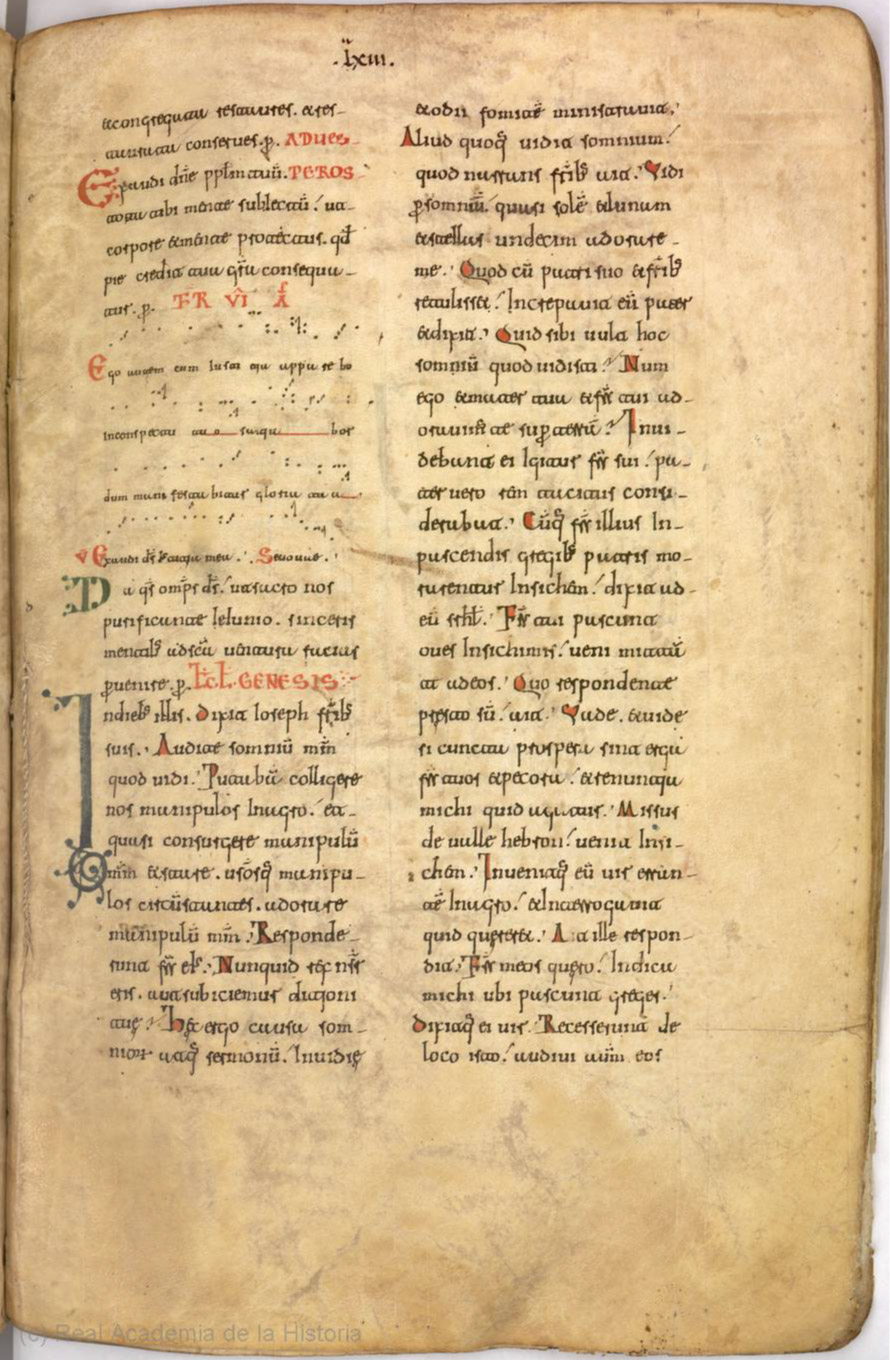 .lxiii.
& congregata restaures. & res-
taurata conserues. p. AD UES-
Exaudi dne ppl̄m tuū. PEROS
tota tibi mente subiectū! ut a
corpore & mente protectus. qd̄
pie credit tua grā consequa-
tur. p. FR VI A
Ego autem cum iusticia appare bo
in conspectu tuo satiabor
dum manifestabitur gloria tua
V Exaudi ds̄ iusticia mea. Seuouae.
Da qs omps ds! ut sacro nos
purificante ieiunio. sinceris
mentib; ad scā uentura facias
puenire. p. Lc̄t. GENESIS
In dieb; illis. Dixit Ioseph frīb;
suis. Audite somniū mm̄
quod uidi. Putabā colligere
nos manipulos In agro! et
quasi consurgere manipulū
mm̄ & stare. ur̄osq; manipu-
los circūstantes. adorare
manipulū mm̄. Responde-
runt frs̄ ei. Nunquid rex nr̄
eris. aut subiciemur dicioni
tuę. Hęc ergo causa som-
nior atq; sermonū. Inuidię
& odii fomitē ministrauit.
Aliud quoq; uidit somnium!
quod narrans frīb; ait. Vidi
p somniū. quasi solē & lunam
& stellas undecim adorare
me. Quod cū patri suo & frīb;
retulisset! Increpauit eū pater
& dixit. Quid sibi uult hoc
somniū quod uidisti? Num
ego & mater tua & frs̄ tui ad-
orauim; te sup terrā? Inui-
debant ei igitur frs̄ sui! pa-
ter uero rem tacitus consi-
derabat. Cūq; frs̄ illius In
pascendis gregib; patris mo-
rarentur In sichen! dixit ad
eū isrl̄. Frs̄ tui pascunt
oues In sichimis! ueni mittā
te ad eos. Quo respondente
presto sū! ait. Vade. & uide
si cuncta prospera sint erga
frs̄ tuos & pecora! & renuntia
michi quid agatur. Missus
de ualle hebron! uenit In si-
chen. Inuenitq; eū uir erran-
tē In agro! & Interrogauit
quid quęreret. At ille respon-
dit. Frs̄ meos quęro! Indica
michi ubi pascunt greges.
Dixitq; ei uir. Recesserunt de
loco isto! audiui autm̄ eos
(c) Real Academia de la Historia